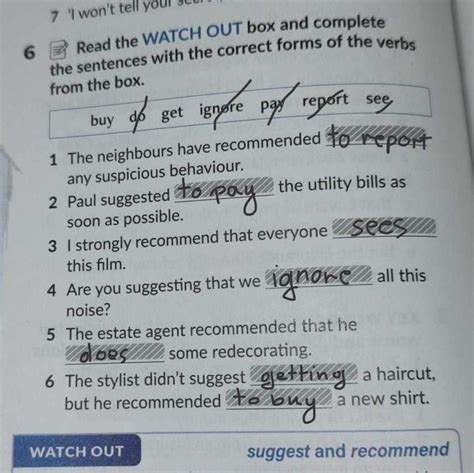 7 'I won't tell your
6 Read the WATCH OUT box and complete
the sentences with the correct forms of the verbs
from the box.
buy do get ignore pay report see
1 The neighbours have recommended to report
any suspicious behaviour.
2 Paul suggested to pay the utility bills as
soon as possible.
3 I strongly recommend that everyone sees
this film.
4 Are you suggesting that we ignore all this
noise?
5 The estate agent recommended that he
does some redecorating.
6 The stylist didn't suggest getting a haircut,
but he recommended to buy a new shirt.
WATCH OUT suggest and recommend